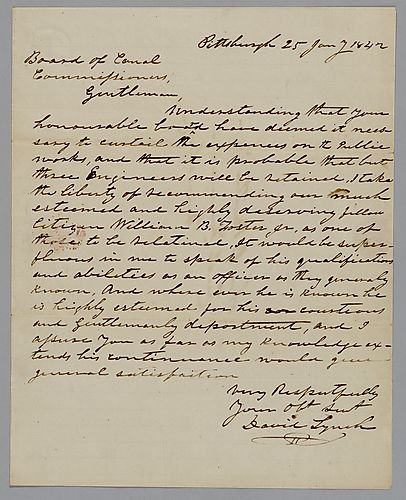 Pittsburgh 25 Jany 1842
Board of Canal
Commissioners,
Gentlemen,
Understanding that your
honourable board have deemed it neces
sary to curtail the expenses on the Public
works, and that it is probable that but
three Engineers will be retained, I take
the liberty of recommending our much
esteemed and highly deserving fellow
Citizen William B. Foster Jr, as one of
those to be retained, It would be super-
fluous in me to speak of his qualifications
and abilities as an officer as they generally
known, And where ever he is known he
is highly esteemed for his courteous
and Gentlemanly deportment, and I
assure you as far as my knowledge ex-
tends his continuance would give
general satisfaction
Very Respectfully
Your Obt Sert
David Lynch